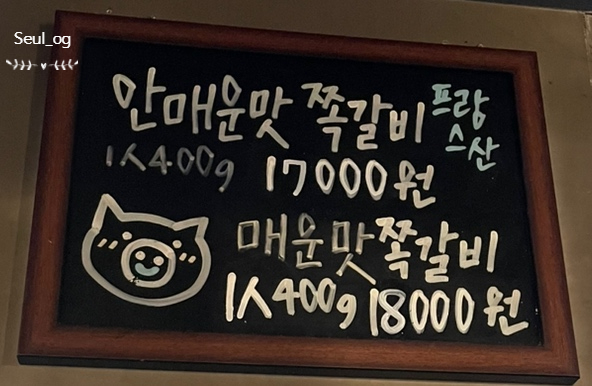 Seul_og
안매운맛 쪽갈비 프랑
스산
1人400g 17000원
매운맛쪽갈비
1人400g 18000원